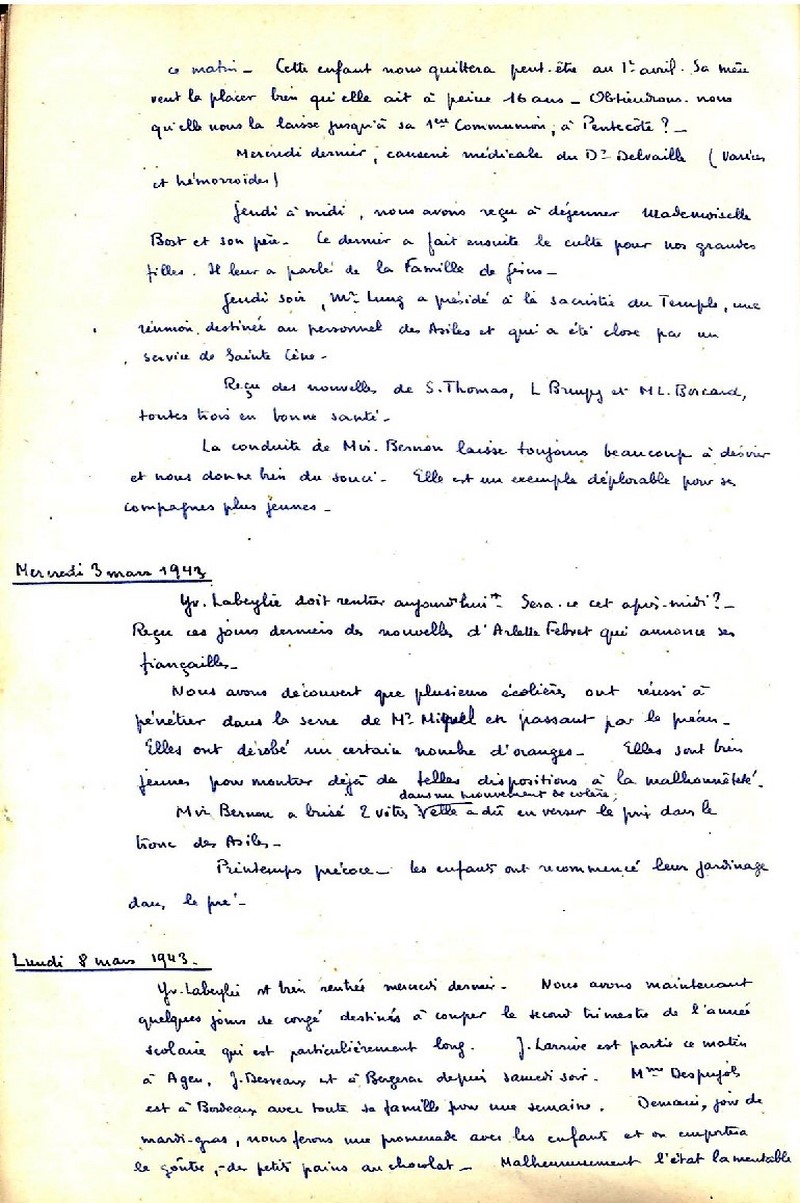 ce matin _ Cette enfant nous quittera peut-être au 1er avril. Sa mère
veut la placer bien qu'elle ait à peine 16 ans _ Obtiendrons-nous
qu'elle nous la laisse jusqu'à sa 1ère Communion, à Pentecôte ? _
Mercredi dernier, causerie médicale du Dr Delvaille (Varices
et hémorroïdes)
Jeudi à midi, nous avons reçu à déjeuner Mademoiselle
Bost et son père. Ce dernier a fait ensuite le culte pour nos grandes
filles. Il leur a parlé de la Famille de Jésus _
Jeudi soir, Mr Lung a présidé à la sacristie du Temple, une
réunion destinée au personnel des Asiles et qui a été close par un
service de Sainte Cène _
Reçu des nouvelles de S. Thomas, L et M L. Borcard,
toutes trois en bonne santé _
La conduite de Mvi. Bernon laisse toujours beaucoup à désirer
et nous donne bien du souci. Elle est un exemple déplorable pour ses
compagnes plus jeunes _
Mercredi 3 mars 1943
Yv. Labeylie doit rentrer aujourd'hui. Sera-ce cet après-midi ? _
Reçu ces jours derniers des nouvelles d'Arlette Febret qui annonce ses
fiançailles _
Nous avons découvert que plusieurs écolières ont réussi à
pénétrer dans la serre de Mr Miquell en passant par le préau _
Elles ont dérobé un certain nombre d'oranges _ Elles sont bien
jeunes pour montrer déjà de telles dispositions à la malhonnêteté.
dans un mouvement de colère,
Mvi Bernon a brisé 2 vitres. Elle a dû en verser le prix dans le
tronc des Asiles _
Printemps précoce _ Les enfants ont recommencé leur jardinage
dans le pré _
Lundi 8 mars 1943.
Yv. Labeylie est bien rentrée mercredi dernier. Nous avons maintenant
quelques jours de congé destinés à couper le second trimestre de l'année
scolaire qui est particulièrement long. J. Larrive est partie ce matin
à Agen, J. Desveaux est à Bergerac depuis samedi soir. Mme Despujols
est à Bordeaux avec toute sa famille pour une semaine. Demain, jour de
mardi-gras, nous ferons une promenade avec les enfants et on emportera
le goûter, - des petits pains au chocolat _ Malheureusement l'état lamentable